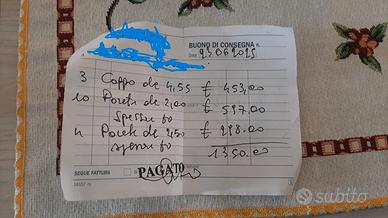 BUONO DI CONSEGNA n.
Data 23062025
3 Coppo de 4,55 € 453,00
10 Porete de 2,00 € 597.00
Spessore 60
4 Porete de 2,50 € 298.00
spessore 60
1350.00
SEGUE FATTURA
PAGATO
subito